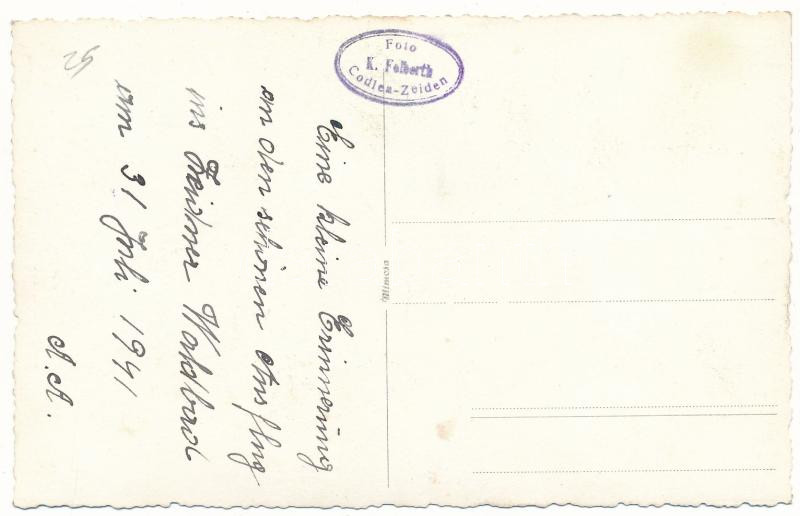 25
Foto
K. Folberth
Codlea-Zeiden
Eine kleine Erinnerung
an den schönen Ausflug
ins Zeidner Waldbad
am 31 Juli 1941
A.A.
Mimosa